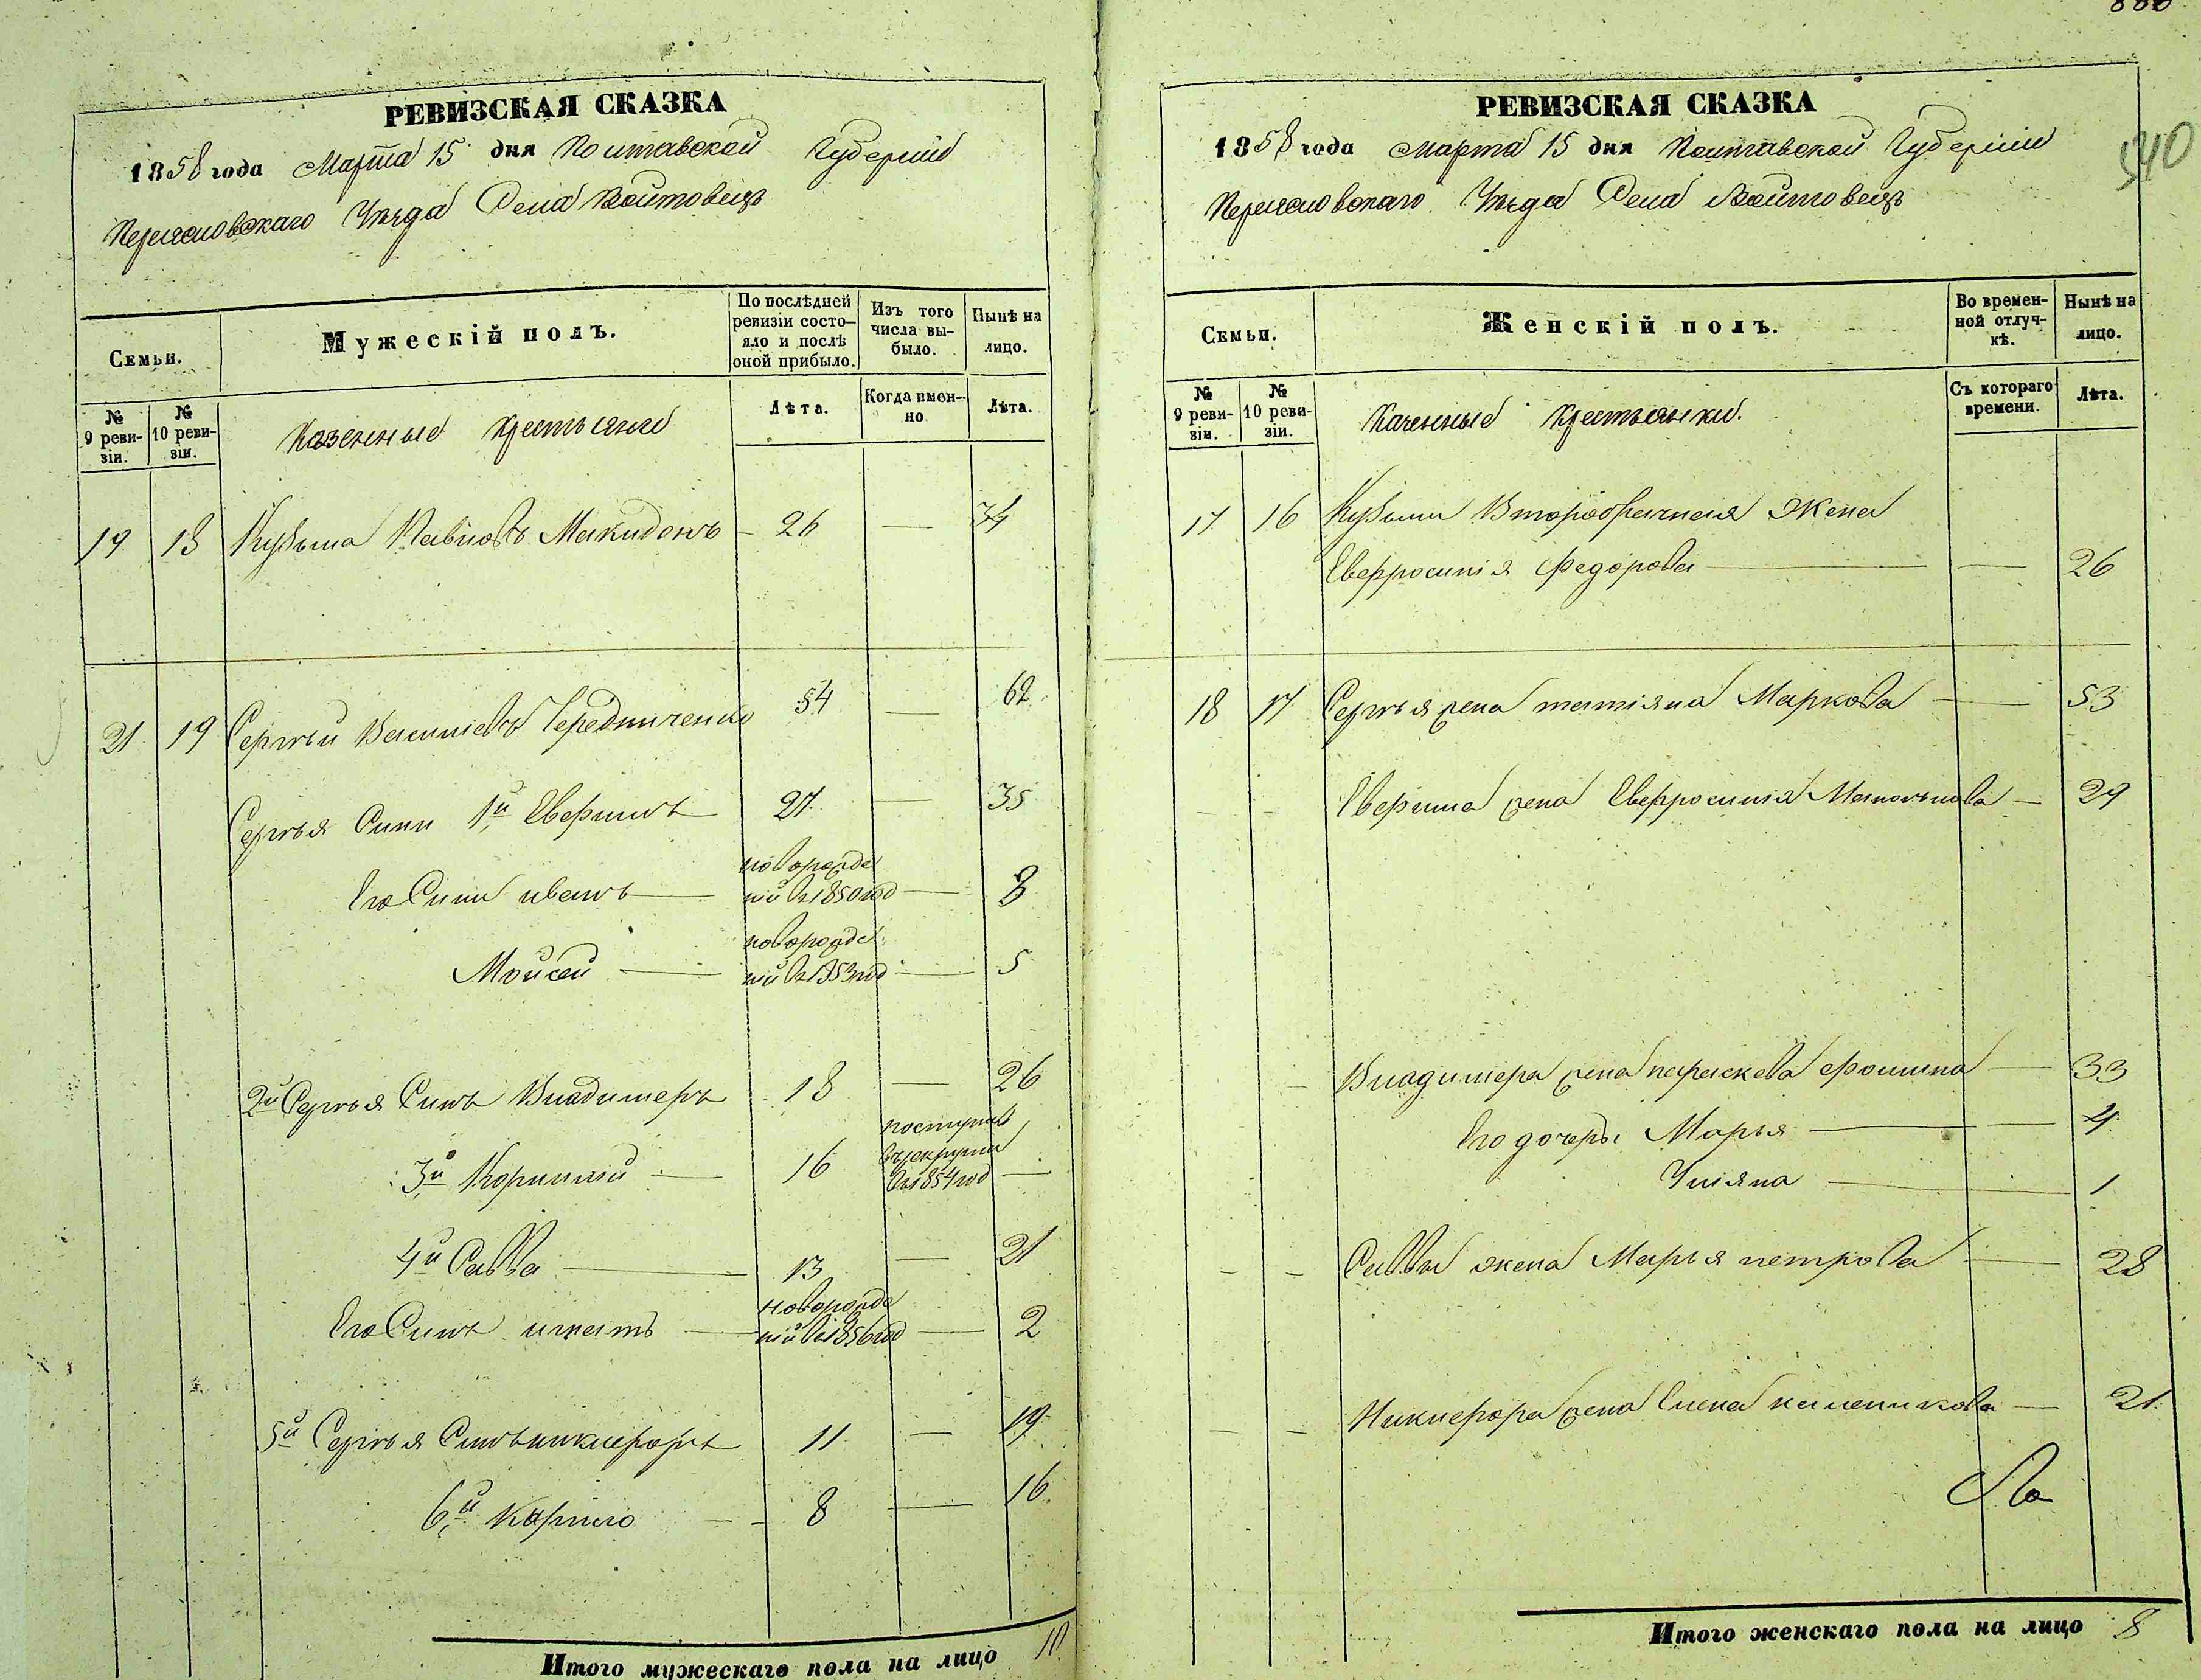 РЕВИЗСКАЯ СКАЗКА
1858 года Марта 15 дня Полтавской Губернии
Переяславскаго Уѣзда Села Войтовецъ
Семьи.
Мужескій полъ.
По послѣдней ревизіи состояло и послѣ оной прибыло.
Изъ того числа выбыло.
Нынѣ на лицо.
№ 9 ревизіи.
№ 10 ревизіи.
Казенные крестьяне
Лѣта.
Когда именно
Лѣта.
19 18 Кузьма Павловъ Макидонъ – 26 — 34
21 19 Сергѣй Василіевъ Чередниченко 54 — 62
Сергѣя Сини 1й Еверишъ 27 — 35
Его Сини иванъ — новорожде
ній въ 1850 год — 8
Мойсей — новорожде
ній въ 1853 год — 5
2й Сергѣя Синъ Владимеръ 18 — 26
3й Корнилій — 16 поступил
въ рекруты
въ 1854 год —
4й Савва — 13 — 21
Его Синъ игнатъ — новорожде
ній въ 1856 год — 2
5й Сергѣя Синъ никифоръ 11 — 19
6й Карпло – – 8 — 16
Итого мужескаго пола на лицо 10.
РЕВИЗСКАЯ СКАЗКА
340
1858 года марта 15 дня Полтавской Губернии
Переяславскаго Уѣзда Села Войтовецъ
Семьи.
Женскій полъ.
Во временной отлучкѣ.
Нынѣ на лицо.
№ 9 ревизіи.
№ 10 ревизіи.
Казенные крестьянки.
Съ котораго времени.
Лѣта.
17 16 Кузьми Второбрачная Жена
Евфросинія Федорова — — 26
18 17 Сергѣя жена татіяна Маркова — 53
- - Евериша жена Евфросинія — 29
- Владимера жена параскева Фомина — 33
Его дочеры Марья — — 4
Уліяна — 1
- - Саввы жена Марья петрова — 28
- - Никифора жена Елена — 21.
Итого женскаго пола на лицо 8